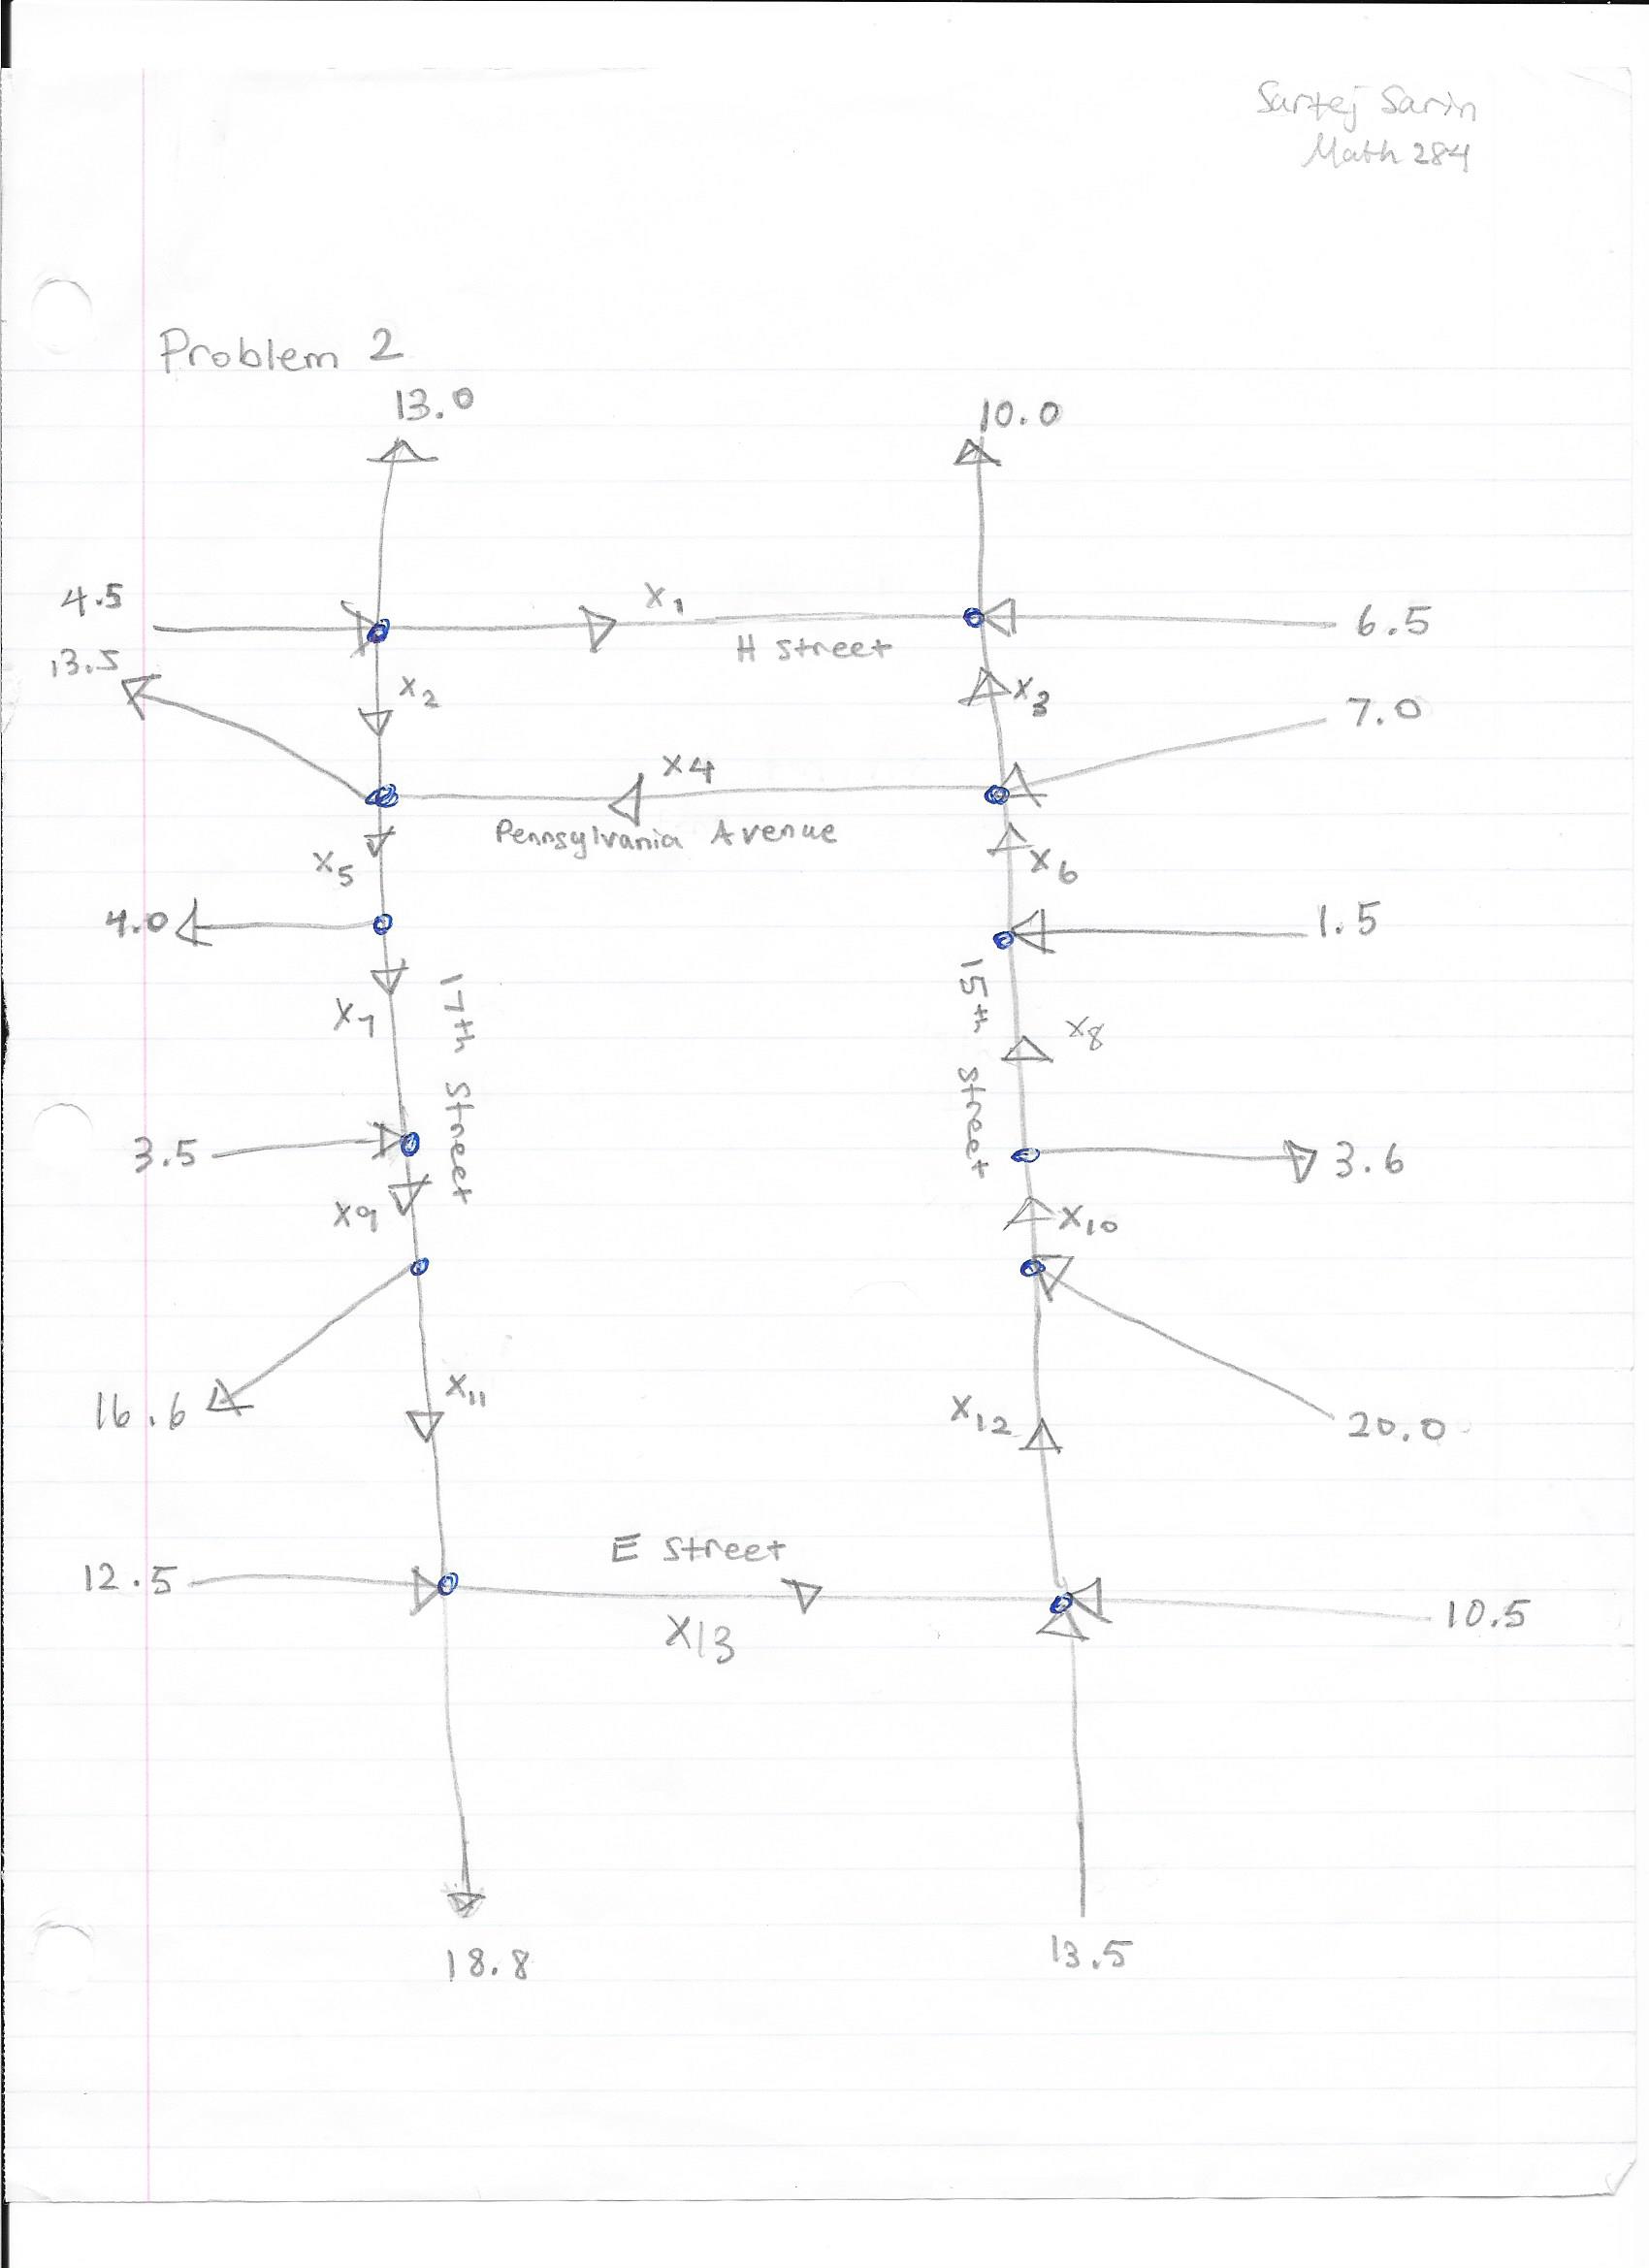 Sartej Sarin
Math 284
Problem 2
13.0
10.0
4.5
x1
H Street
6.5
13.5
x2
x3
7.0
x4
Pennsylvania Avenue
x5
x6
4.0
1.5
x7
17th Street
15th Street
x8
3.5
3.6
x9
x10
16.6
x11
x12
20.0
12.5
E Street
x13
10.5
18.8
13.5